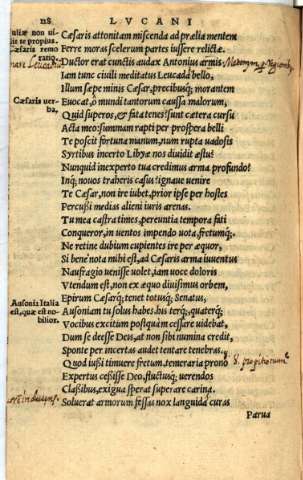 118 LVCANI
uliæ non uul
te se propius.
Cæsaris remo
ratio.
Cæsaris uer=
ba.
Ausonis Italia
est, quæ est no=
bilior.
Cæsaris attonitam miscenda ad prælia mentem
Ferre moras scelerum partes iussere relictæ.
Ductor erat cunctis audax Antonius armis
Iam tunc ciuili meditatus Leucada bello,
Illum sæpe minis Cæsar, precibusq; morantem
Euocat, ò mundi tantorum caussa malorum,
Quid superos, & fata tenes? sunt cætera cursu
Acta meo: summam rapti per prospera belli
Te poscit fortuna manum, num rupta uadosis
Syrtibus incerto Libyæ nos diuidit æstu?
Nunquid inexperto tua credimus arma profundo?
Inq; nouos traheris casus? ignaue uenire
Te Cæsar, non ire iubet, prior ipse per hostes
Percussi medias alieni iuris arenas.
Tu mea castra times, pereuntia tempora fati
Conqueror, in uentos impendo uota, fretumq;.
Ne retine dubium cupientes ire per æquor,
Si bene nota mihi est, ad Cæsaris arma iuuentus
Naufragio uenisse uolet, iam uoce doloris
Vtendum est, non ex æquo diuisimus orbem,
Epirum Cæsarq; tenet totusq; Senatus,
Ausoniam tu solus habes. his terq;, quaterq;
Vocibus excitum postquàm cessare uidebat,
Dum se deesse Deis, at non sibi numina credit,
Sponte per incertas audet tentare tenebras.
Quod iussi timuere fretum, temeraria prono
Expertus cessisse Deo, fluctusq; uerendos
Classibus, exigua sperat superare carina.
Soluerat armorum fessas nox languida curas
Parua